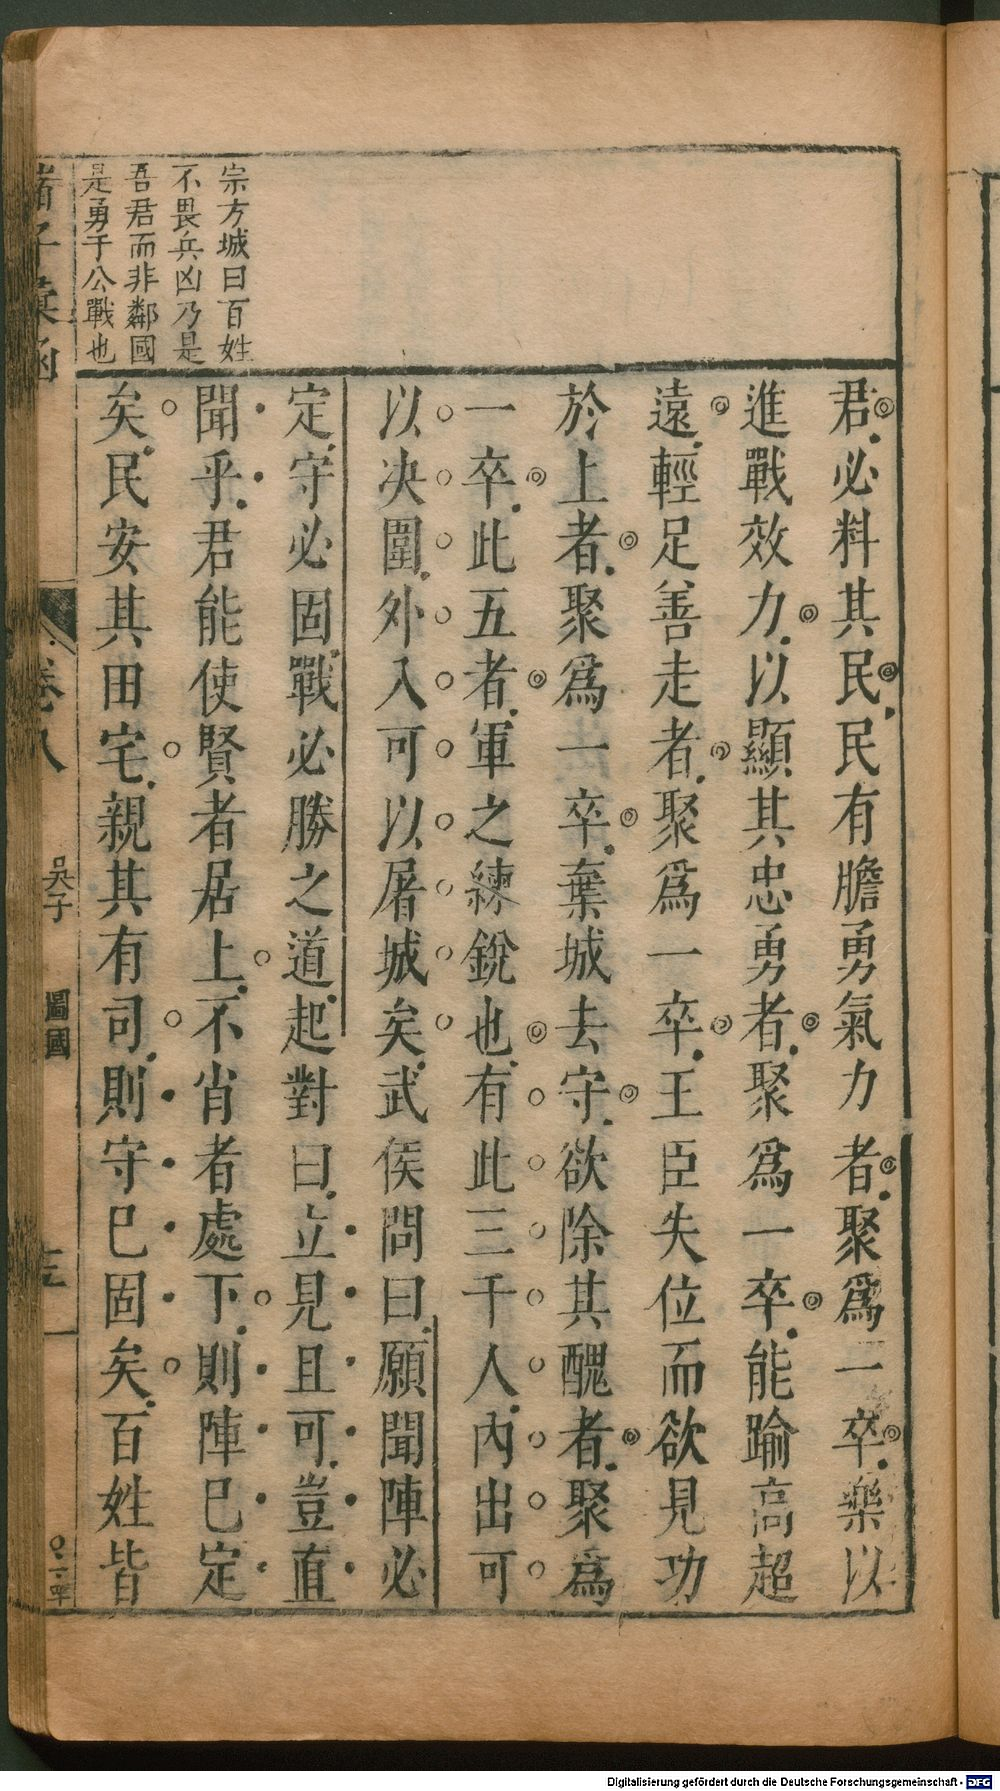 君必料其民民有膽勇氣力者聚爲一卒樂以
進戰效力以顯其忠勇者聚爲一卒能踰高超
遠輕足善走者聚爲一卒王臣失位而欲見功
於上者聚爲一卒棄城去守欲除其醜者聚爲
一卒此五者軍之練銳也有此三千人內出可
以决圍外入可以屠城矣武侯問曰願聞陣必
定守必固戰必勝之道起對曰立見且可豈直
聞乎君能使賢者居上不肖者處下則陣已定
矣民安其田宅親其有司則守已固矣百姓皆
宗方城曰百姓
不畏兵凶乃是
吾君而非鄰國
是勇于公戰也
諸子彙函
卷八
吳子
圖國
Digitalisierung gefördert durch die Deutsche Forschungsgemeinschaft - DFG